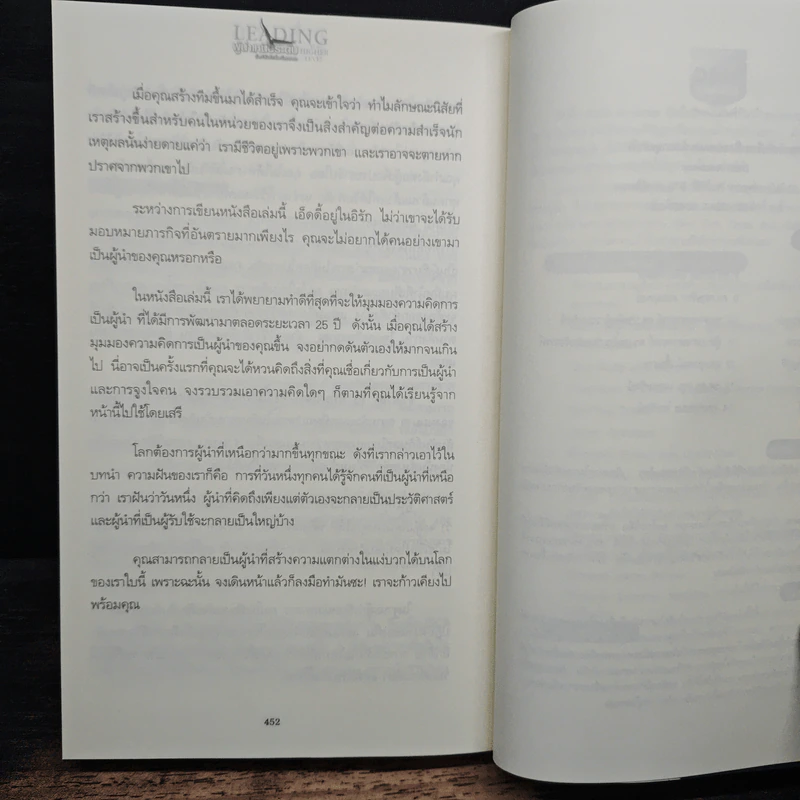 LEADING
เมื่อคุณสร้างทีมขึ้นมาได้สำเร็จ คุณจะเข้าใจว่า ทำไมลักษณะนิสัยที่
เราสร้างขึ้นสำหรับคนในหน่วยของเราจึงเป็นสิ่งสำคัญต่อความสำเร็จนัก
เหตุผลนั้นง่ายดายแค่ว่า เรามีชีวิตอยู่เพราะพวกเขา และเราอาจจะตายหาก
ปราศจากพวกเขาไป
ระหว่างการเขียนหนังสือเล่มนี้ เอ็ดดี้อยู่ในอิรัก ไม่ว่าเขาจะได้รับ
มอบหมายภารกิจที่อันตรายมากเพียงไร คุณจะไม่อยากได้คนอย่างเขามา
เป็นผู้นำของคุณหรอกหรือ
ในหนังสือเล่มนี้ เราได้พยายามทำดีที่สุดที่จะให้มุมมองความคิดการ
เป็นผู้นำ ที่ได้มีการพัฒนามาตลอดระยะเวลา 25 ปี ดังนั้น เมื่อคุณได้สร้าง
มุมมองความคิดการเป็นผู้นำของคุณขึ้น จงอย่ากดดันตัวเองให้มากจนเกิน
ไป นี่อาจเป็นครั้งแรกที่คุณจะได้หวนคิดถึงสิ่งที่คุณเชื่อเกี่ยวกับการเป็นผู้นำ
และการจูงใจคน จงรวบรวมเอาความคิดใดๆ ก็ตามที่คุณได้เรียนรู้จาก
หน้านี้ไปใช้โดยเสรี
โลกต้องการผู้นำที่เหนือกว่ามากขึ้นทุกขณะ ดังที่เรากล่าวเอาไว้ใน
บทนำ ความฝันของเราก็คือ การที่วันหนึ่งทุกคนได้รู้จักคนที่เป็นผู้นำที่เหนือ
กว่า เราฝันว่าวันหนึ่ง ผู้นำที่คิดถึงเพียงแต่ตัวเองจะกลายเป็นประวัติศาสตร์
และผู้นำที่เป็นผู้รับใช้จะกลายเป็นใหญ่บ้าง
คุณสามารถกลายเป็นผู้นำที่สร้างความแตกต่างในแง่บวกได้บนโลก
ของเราใบนี้ เพราะฉะนั้น จงเดินหน้าแล้วก็ลงมือทำมันซะ! เราจะก้าวเคียงไป
พร้อมคุณ
452